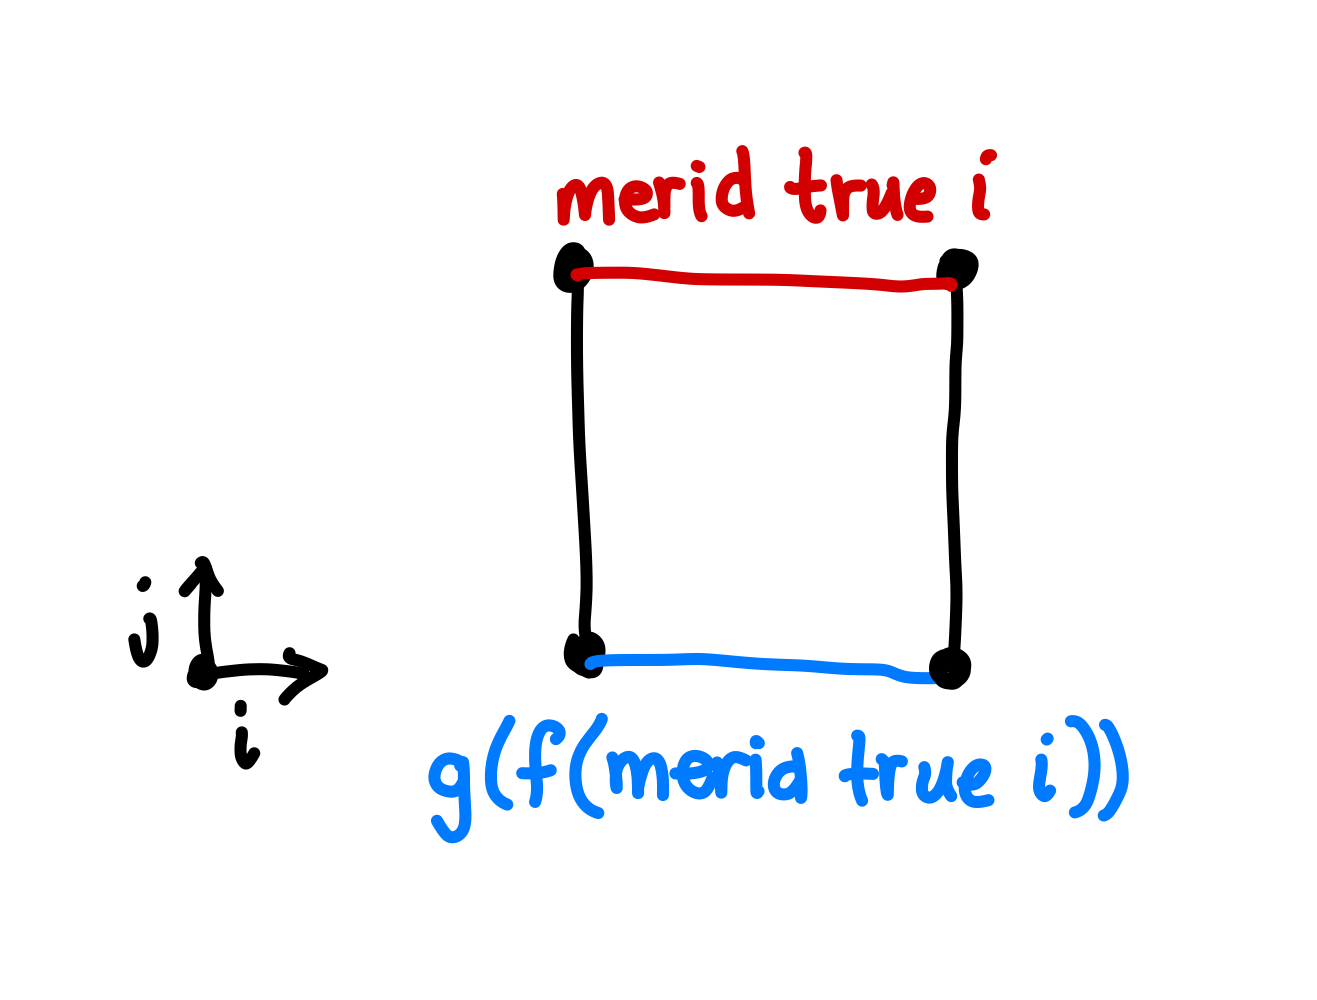 merid true i
j
i
g(f(merid true i))